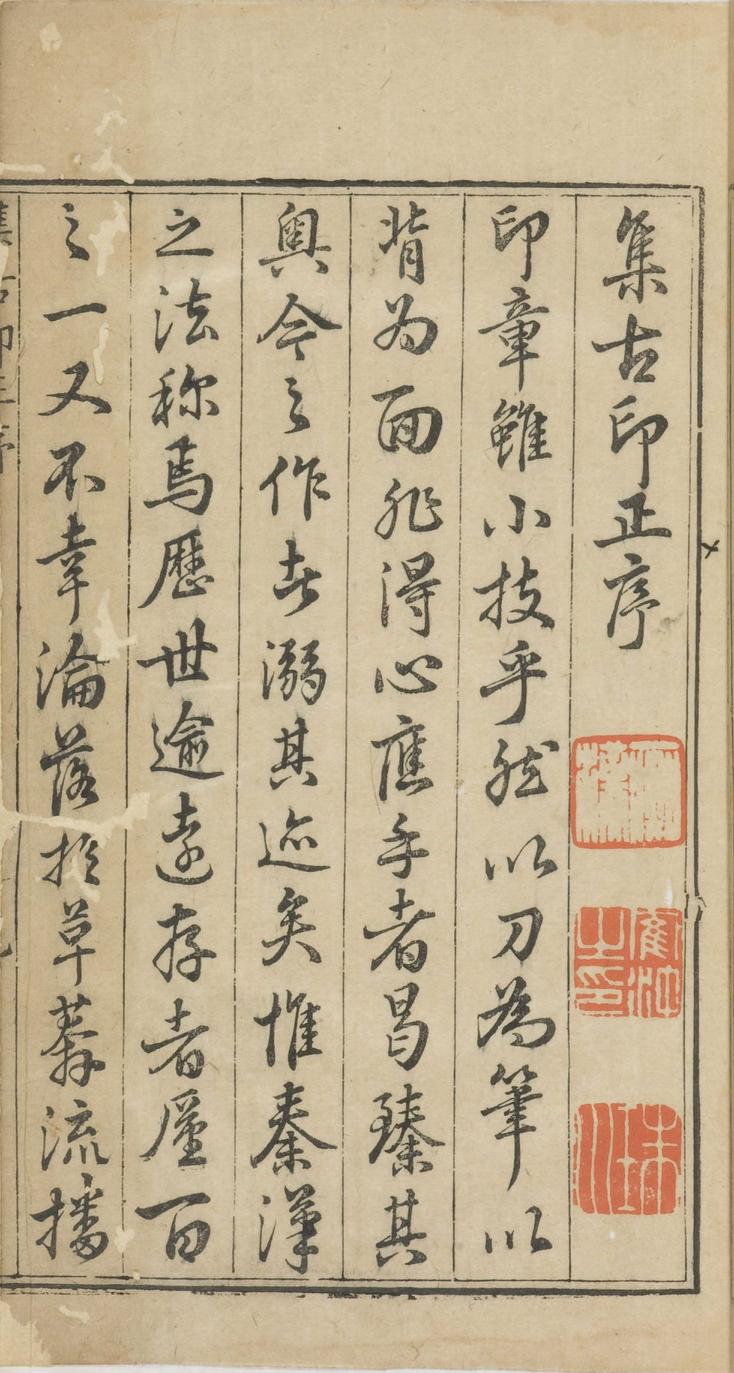 集古印正序
印章雖小技乎然以刀為筆以
背为面非得心應手者曷臻其
奧今之作者溺其迹矣惟秦漢
之法称焉歷世逾遠存者廑百
之一又不幸淪落於草莽流播